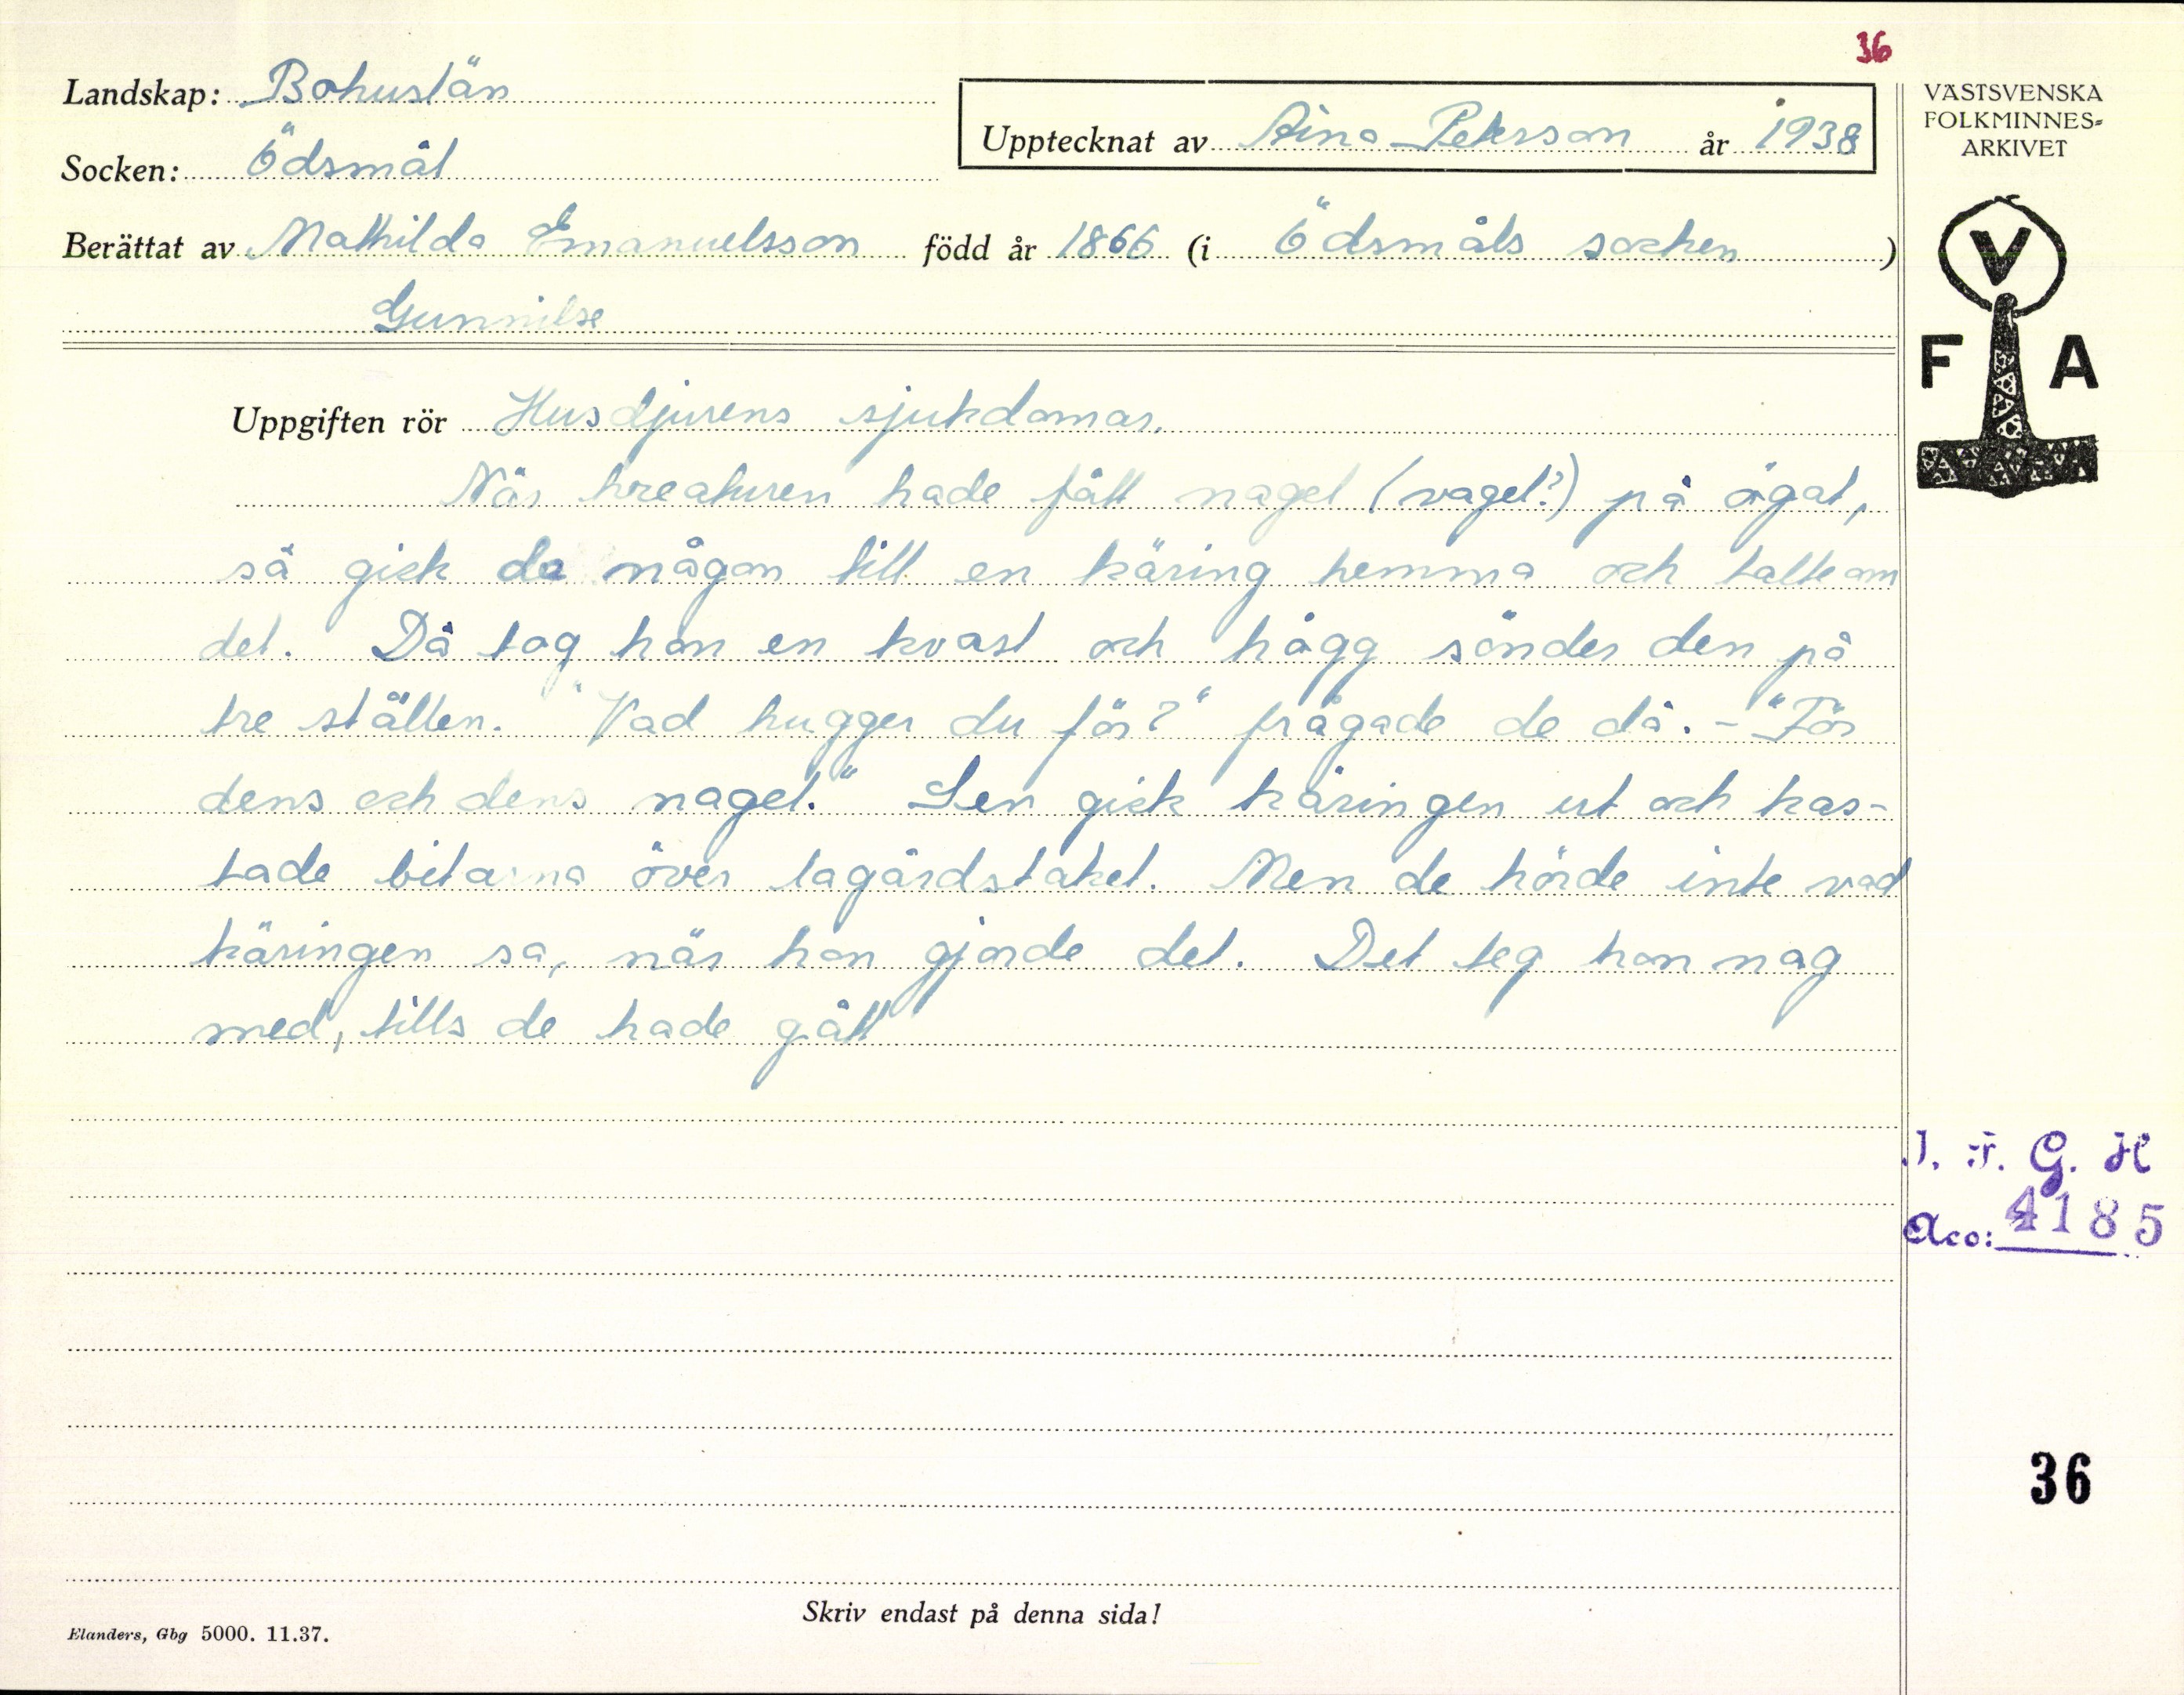 36
Landskap: Bohuslän
Upptecknat av Aina Peterson år 1938
VÄSTSVENSKA
FOLKMINNES=
ARKIVET
Socken: Ödsmål
Berättat av Mathilda Emanuelsson född år 1866 (i Ödsmåls socken)
Gunnilse
V
F A
Uppgiften rör Husdjurens sjukdomar.
När kreaturen hade fått nagel (vagel?) på ögat,
så gick de någon till en käring hemma och talte om
det. Då tog hon en kvast och högg sönder den på
tre ställen. "Vad hugger du för?" frågade de då. - "För
dens och dens nagel." Sen gick käringen ut och kas-
tade bitarna över lagårdstaket. Men de hörde inte vad
käringen sa, när hon gjorde det. Det teg hon nog
med, tills de hade gått
I. F. G. H
Acc: 4185
36
Skriv endast på denna sida!
Elanders, Gbg 5000. 11.37.